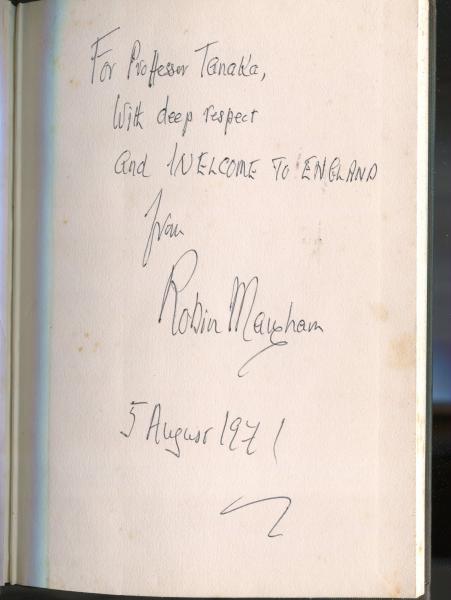 For Proffessor Tanaka,
With deep respect
and WELCOME TO ENGLAND
from
Robin Maugham
5 August 1971